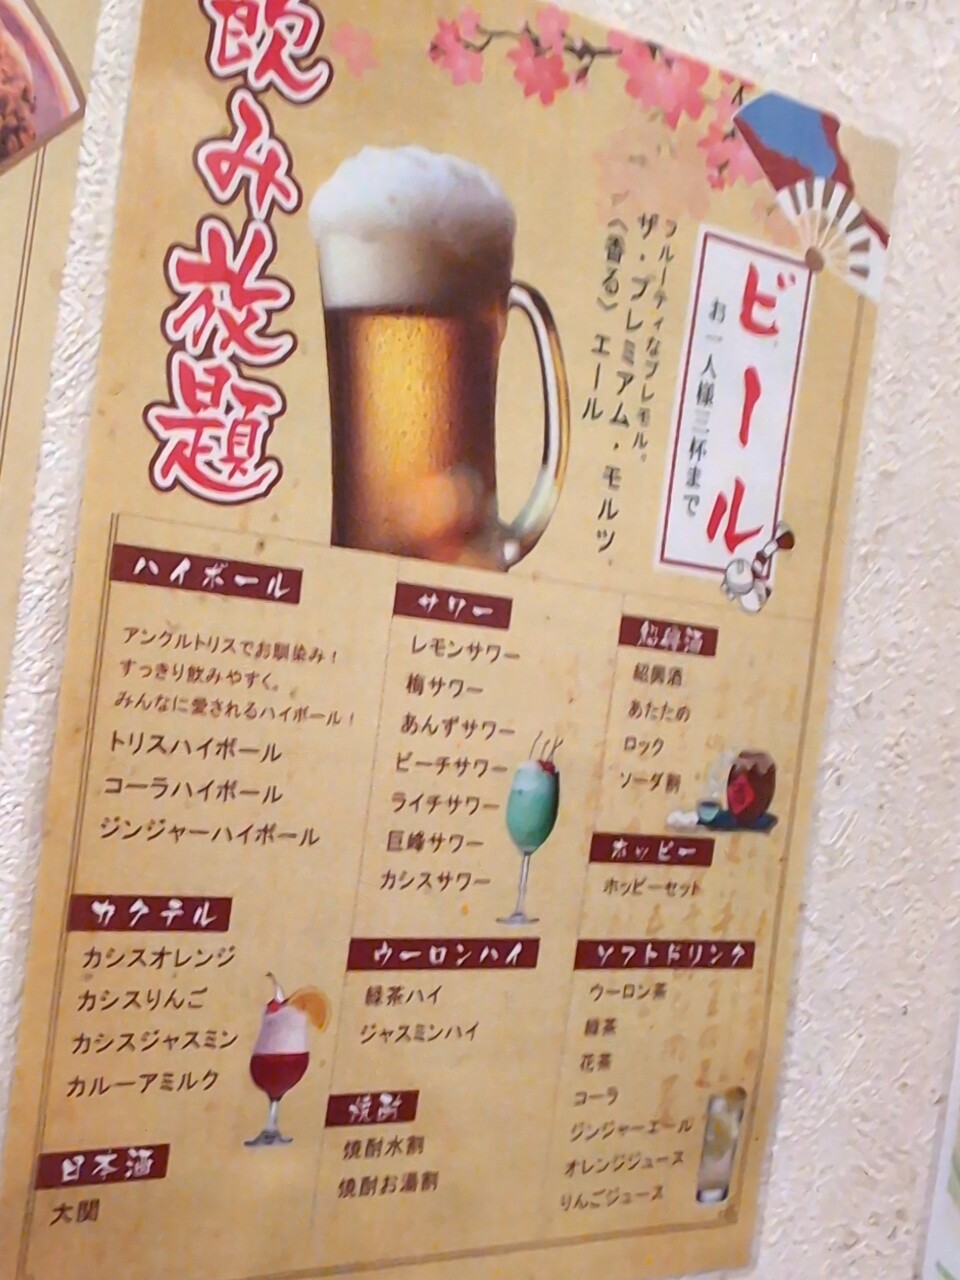 飲み放題
ビール
お一人様三杯まで
フルーティなプレモル。
ザ・プレミアム・モルツ
〈香る〉エール
ハイボール
アングルトリスでお馴染み！
すっきり飲みやすく。
みんなに愛されるハイボール！
トリスハイボール
コーラハイボール
ジンジャーハイボール
カクテル
カシスオレンジ
カシスりんご
カシスジャスミン
カルーアミルク
日本酒
大関
サワー
レモンサワー
梅サワー
あんずサワー
ピーチサワー
ライチサワー
巨峰サワー
カシスサワー
ウーロンハイ
緑茶ハイ
ジャスミンハイ
焼酎
焼酎水割
焼酎お湯割
紹興酒
紹興酒
あたため
ロック
ソーダ割
ホッピー
ホッピーセット
ソフトドリンク
ウーロン茶
緑茶
花茶
コーラ
ジンジャーエール
オレンジジュース
りんごジュース